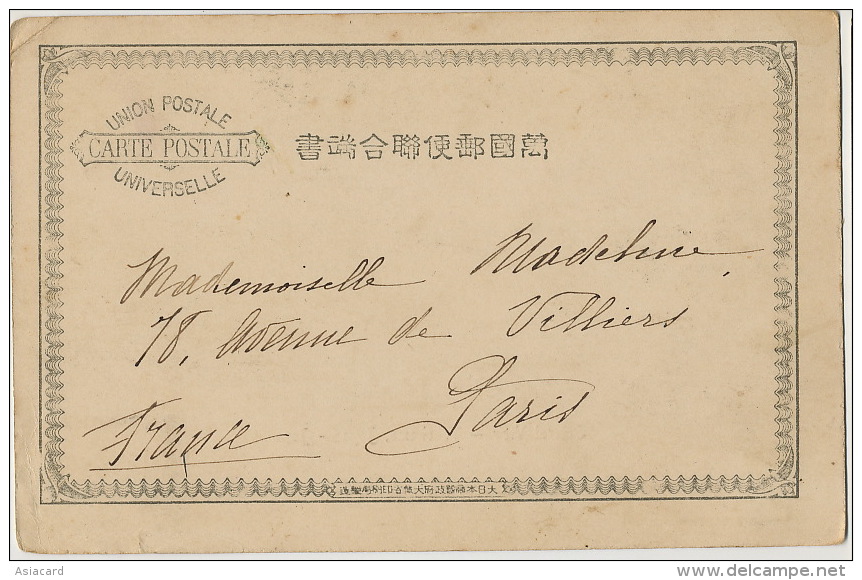 UNION POSTALE
CARTE POSTALE
UNIVERSELLE
書端合聯便郵國萬
Mademoiselle Madeleine,
78, Avenue de Villiers
Paris
France
大日本帝國政府大藏省印刷局製造
Asiacard
www.delcampe.net